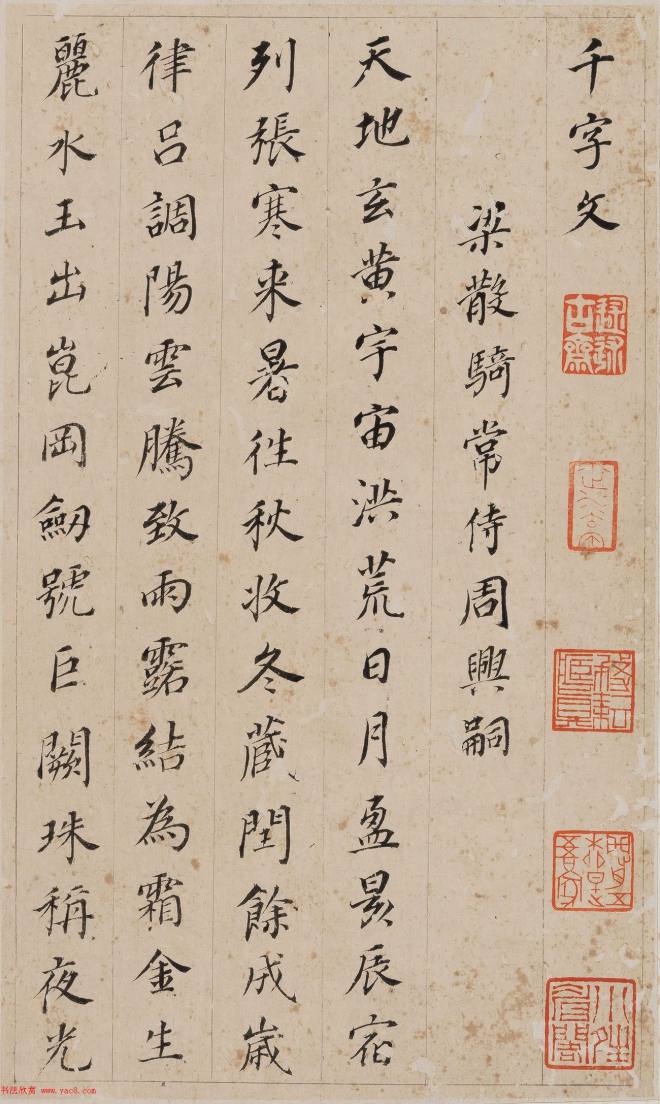 千字文
梁散騎常侍周興嗣
天地玄黃宇宙洪荒日月盈昃辰宿
列張寒来暑往秋收冬藏閏餘成歲
律呂調陽雲騰致雨露結為霜金生
麗水玉出崑岡劒號巨闕珠稱夜光
书法欣赏 www.yac8.com